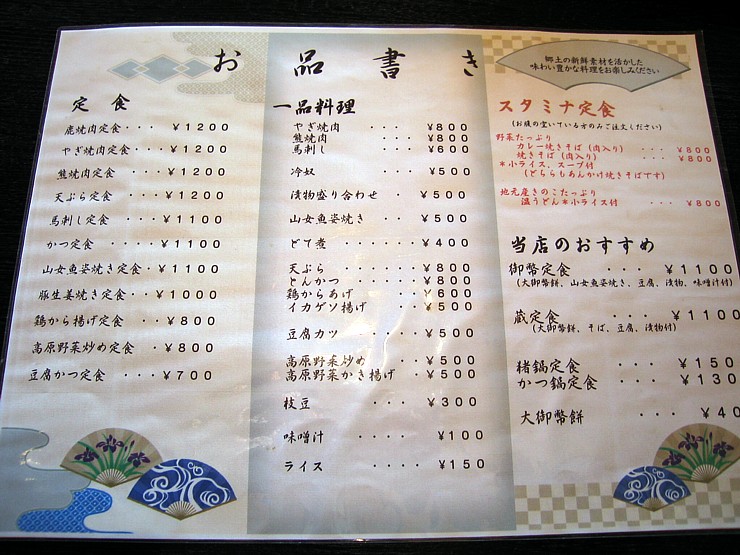 お品書き
定食
鹿焼肉定食・・・ ￥1200
やぎ焼肉定食・・・ ￥1200
熊焼肉定食・・・・ ￥1200
天ぷら定食・・・・ ￥1200
馬刺し定食・・・・ ￥1100
かつ定食 ・・・・￥1100
山女魚姿焼き定食・￥1100
豚生姜焼き定食・・￥1000
鶏から揚げ定食・・・￥800
高原野菜炒め定食・・￥800
豆腐かつ定食・・・￥700
一品料理
やぎ焼肉 ・・・・ ￥800
熊焼肉 ・・・・ ￥800
馬刺し ・・・・ ￥600
冷奴 ・・・・ ￥500
漬物盛り合わせ ・・￥500
山女魚姿焼き ・・ ￥500
どて煮 ・・・・ ￥400
天ぷら ・・・・ ￥800
とんかつ ・・・・ ￥800
鶏からあげ ・・ ￥600
イカゲソ揚げ ・・ ￥500
豆腐カツ ・・・・ ￥500
高原野菜炒め ・・・ ￥500
高原野菜かき揚げ・・・￥500
枝豆 ・・・ ￥300
味噌汁 ・・・・ ￥100
ライス ・・・・ ￥150
郷土の新鮮素材を活かした
味わい豊かな料理をお楽しみください
スタミナ定食
(お腹の空いている方のみご注文ください)
野菜たっぷり
カレー焼きそば(肉入り) ・・・ ￥800
焼きそば(肉入り) ・・・ ￥800
*小ライス、スープ付
(どちらもあんかけ焼きそばです)
地元産きのこたっぷり
温うどん*小ライス付 ・・・ ￥800
当店のおすすめ
御幣定食 ・・・ ￥1100
(大御幣餅、山女魚姿焼き、豆腐、漬物、味噌汁付)
蔵定食 ・・・￥1100
(大御幣餅、そば、豆腐、漬物付)
猪鍋定食 ・・・ ￥150
かつ鍋定食 ・・・ ￥130
大御幣餅 ・・・ ￥40